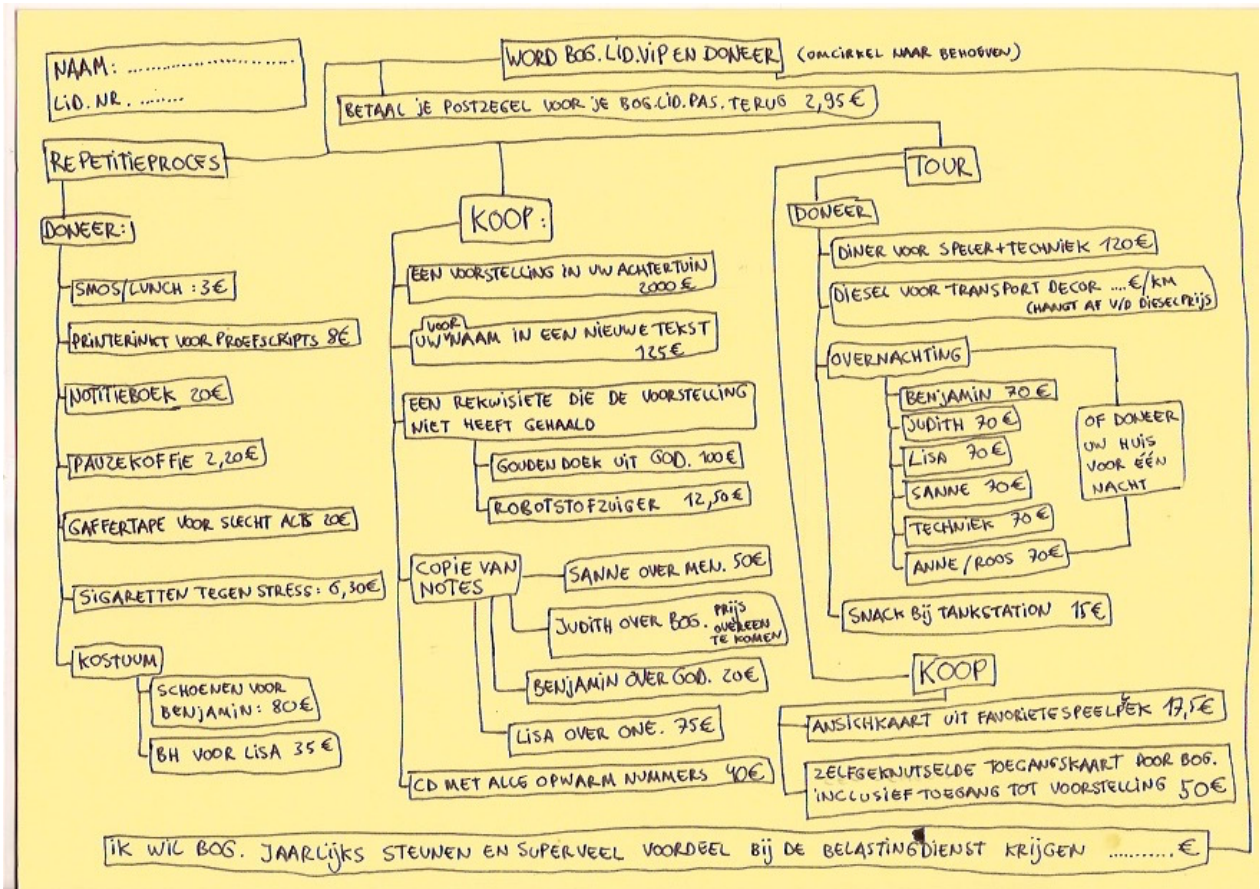 NAAM: ..............................
LID.NR. ........
WORD BOG.LID.VIP EN DONEER (OMCIRKEL NAAR BEHOEVEN)
BETAAL JE POSTZEGEL VOOR JE BOG.LID.PAS.TERUG 2,95€
REPETITIEPROCES
DONEER:
SMOS/LUNCH : 3€
PRINTERINKT VOOR PROEFSCRIPTS 8€
NOTITIEBOEK 20€
PAUZEKOFFIE 2,20€
GAFFERTAPE VOOR SLECHT ALS 20€
SIGARETTEN TEGEN STRESS: 6,30€
KOSTUUM
SCHOENEN VOOR
BENJAMIN: 80€
BH VOOR LISA 35€
KOOP:
EEN VOORSTELLING IN UW ACHTERTUIN
2000€
VOOR
UW NAAM IN EEN NIEUWE TEKST
125€
EEN REKWISIETE DIE DE VOORSTELLING
NIET HEEFT GEHAALD
GOUDEN DOEK UIT GOD. 100€
ROBOTSTOFZUIGER 12,50€
COPIE VAN
NOTES
SANNE OVER MEN. 50€
JUDITH OVER BOG. PRIJS
OVEREEN
TE KOMEN
BENJAMIN OVER GOD. 20€
LISA OVER ONE. 75€
CD MET ALLE OPWARM NUMMERS 40€
TOUR
DONEER
DINER VOOR SPELER+TECHNIEK 120€
DIESEL VOOR TRANSPORT DECOR ....€/KM
(HANGT AF V/D DIESELPRIJS
OVERNACHTING
BENJAMIN 70€
JUDITH 70€
LISA 70€
SANNE 70€
TECHNIEK 70€
ANNE/ROOS 70€
OF DONEER
UW HUIS
VOOR ÉÉN
NACHT
SNACK BIJ TANKSTATION 15€
KOOP
ANSICHKAART UIT FAVORIETE SPEELPLEK 17,5€
ZELFGEKNUTSELDE TOEGANGSKAART DOOR BOG.
INCLUSIEF TOEGANG TOT VOORSTELLING 50€
IK WIL BOG. JAARLIJKS STEUNEN EN SUPERVEEL VOORDEEL BIJ DE BELASTINGDIENST KRIJGEN ...........€